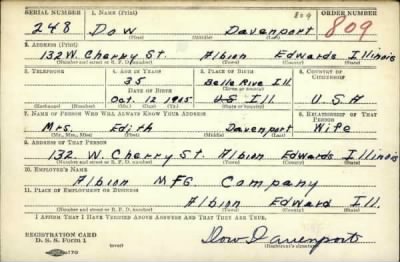 SERIAL NUMBER 1. NAME (Print) 809 ORDER NUMBER
248 Dow Davenport 809
(First) (Middle) (Last)
2. ADDRESS (Print)
132 W. Cherry St. Albion Edwards Illinois
(Number and street or R. F. D. number) (Town) (County) (State)
3. TELEPHONE 4. AGE IN YEARS 5. PLACE OF BIRTH 6. COUNTRY OF CITIZENSHIP
35 Belle Rive Ill.
DATE OF BIRTH (Town or county)
Oct. 12 1905 US Ill. U.S.A
(Exchange) (Number) (Mo.) (Day) (Yr.) (State or country)
7. NAME OF PERSON WHO WILL ALWAYS KNOW YOUR ADDRESS 8. RELATIONSHIP OF THAT PERSON
Mrs. Edith Davenport Wife
(Mr., Mrs., Miss) (First) (Middle) (Last)
9. ADDRESS OF THAT PERSON
132 W. Cherry St. Albion Edwards Illinois
(Number and street or R. F. D. number) (Town) (County) (State)
10. EMPLOYER'S NAME
Albion MFG. Company
11. PLACE OF EMPLOYMENT OR BUSINESS
Albion Edward Ill.
(Number and street or R. F. D. number) (Town) (County) (State)
I AFFIRM THAT I HAVE VERIFIED ABOVE ANSWERS AND THAT THEY ARE TRUE.
REGISTRATION CARD
D. S. S. Form 1 (over) Dow Davenport
(Registrant's signature)